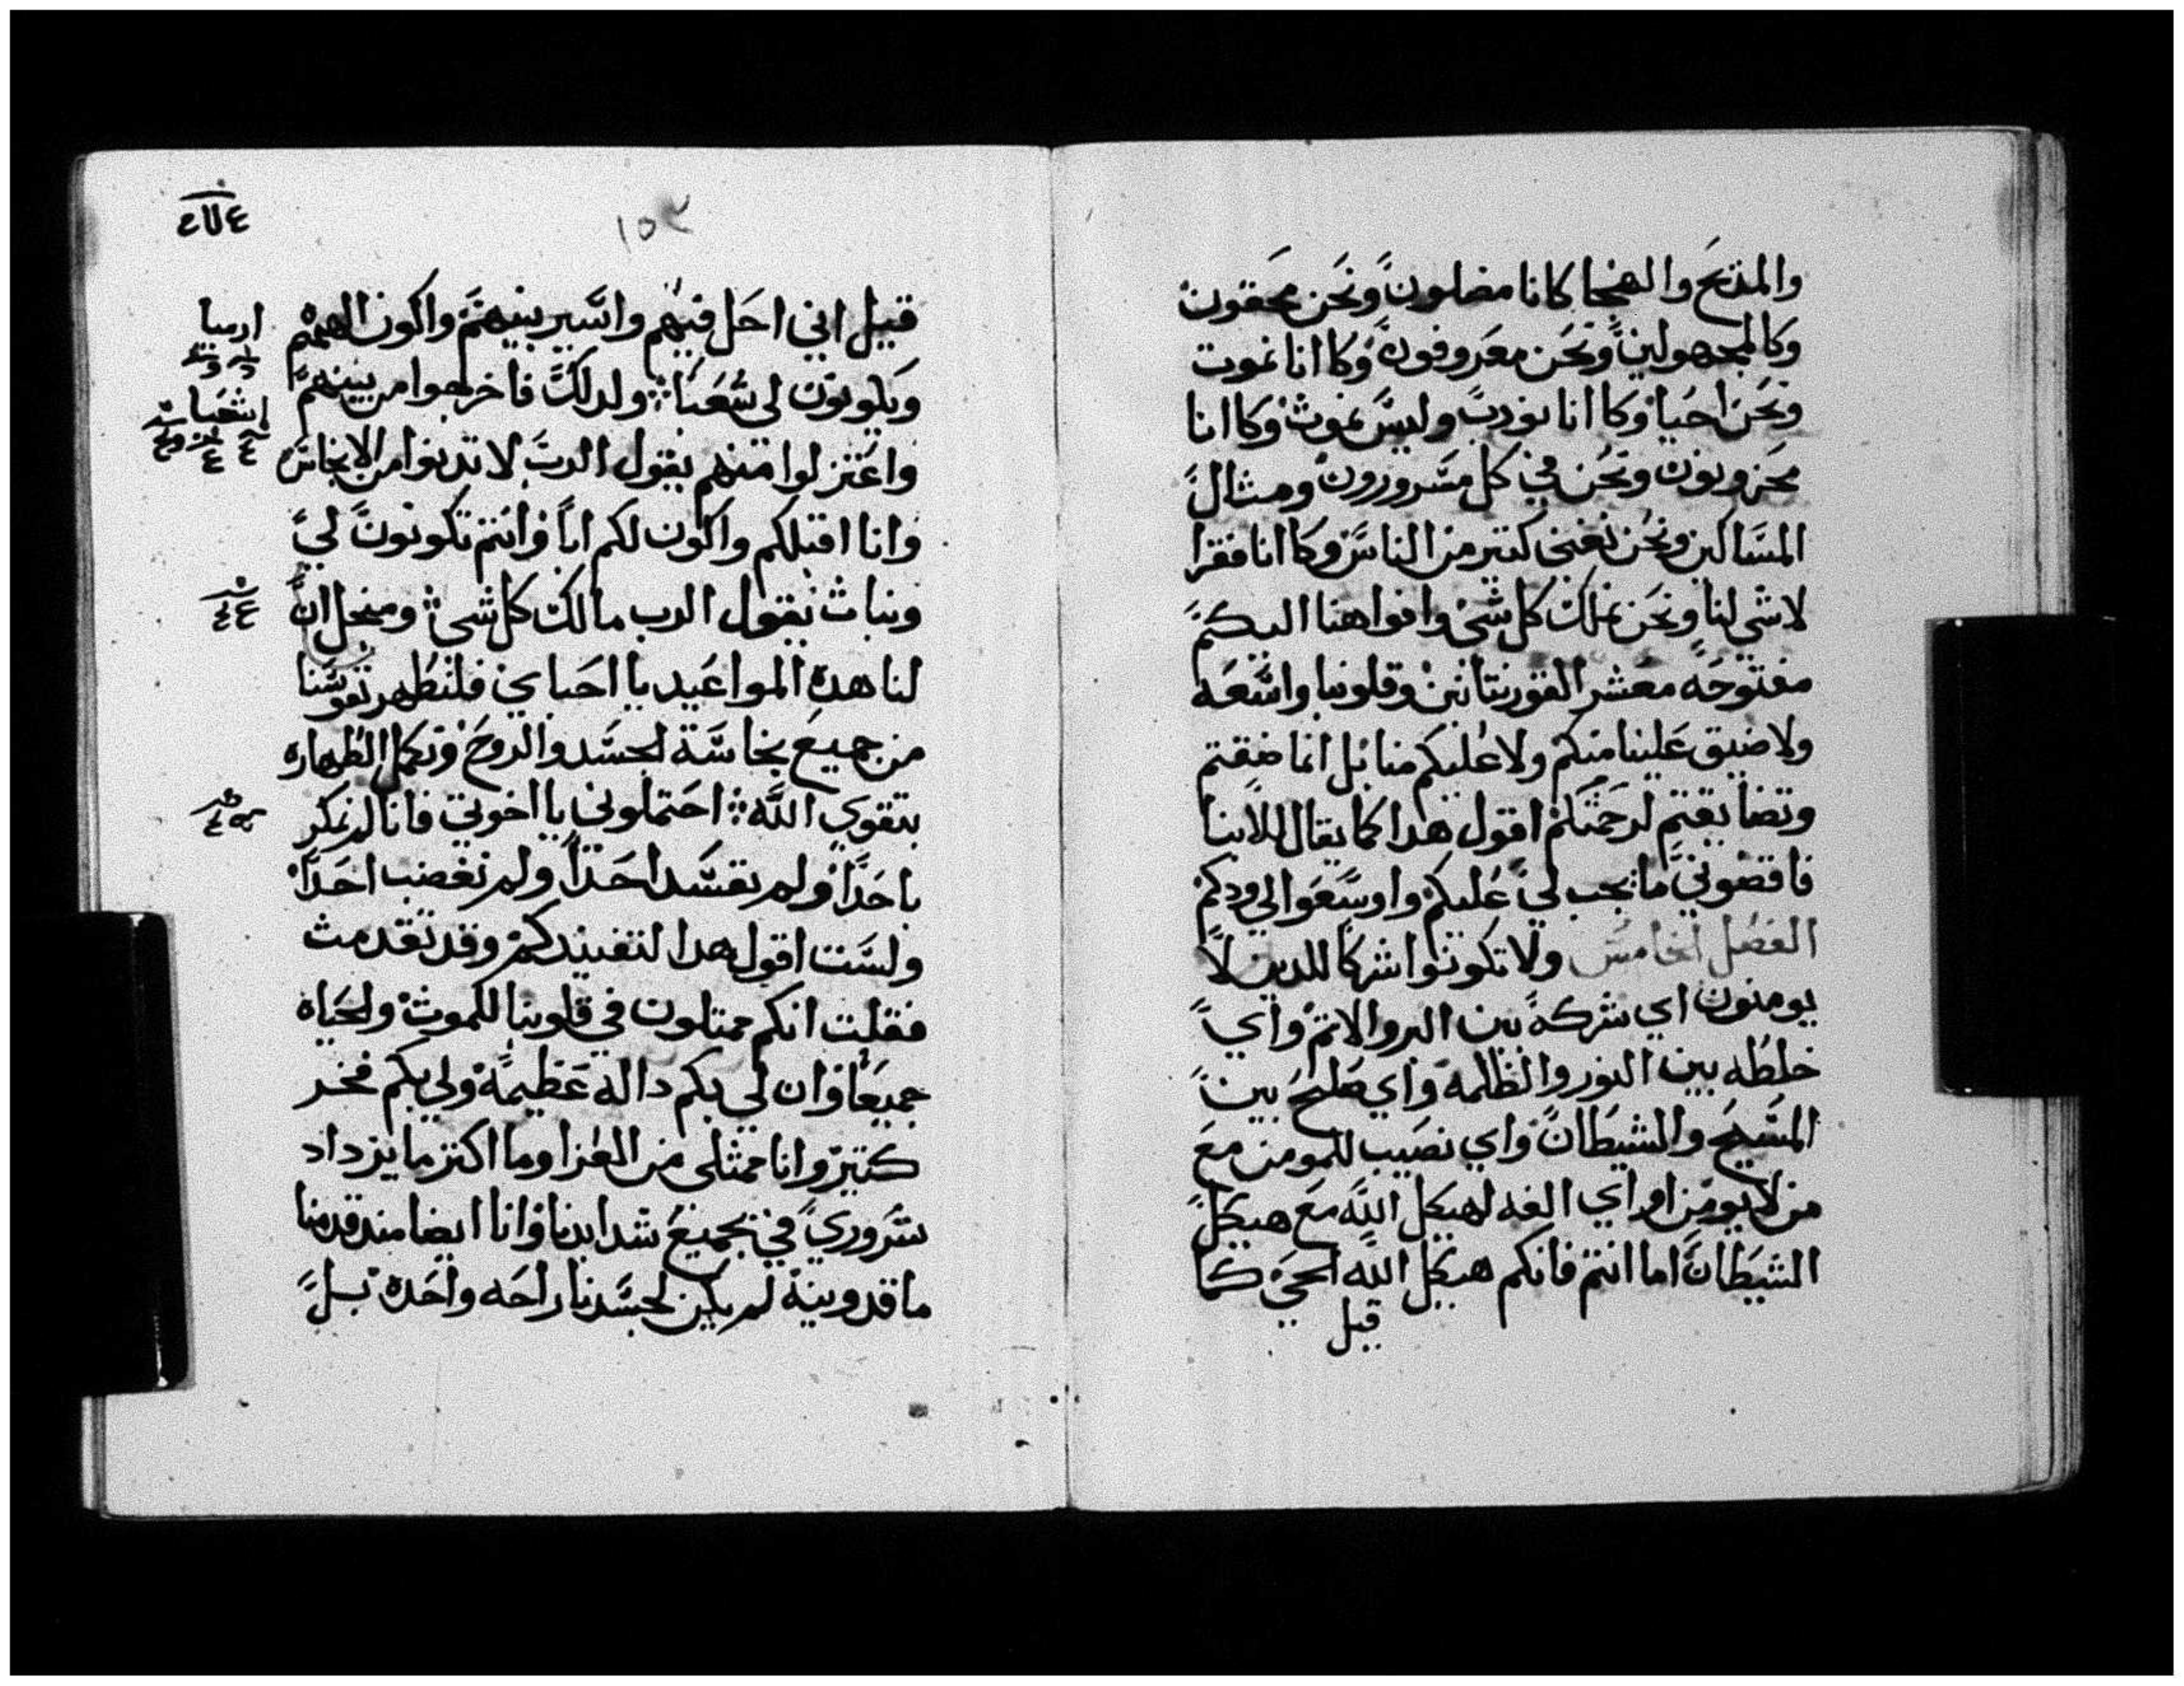 والمدَيح والهجا كانا مضلون ونحَن محَقون
وكالمجهولين ونحَن معَروفون وكاانا نموت
ونحَن احيا وكاانا نودب وليسَ نموت وكاانا
محَزونون ونحُن في كل مسَرورون ومثال
المسَاكين ونحُن نغني كتير من الناسَ وكاانا فقرا
لاشي لنا ونحَن نملك كل شي وافواهنا اليكم
مفتوحَه معَشر القورنتانين وقلوبنا واسَعَه
ولاضيق عَلينا منكم ولا عَليكم منا بل انما ضقتم
وتضايقتم لرحَمتكم اقول هدا كما يقال للابنا
فاقضوني ما يجب لي عَليكم واوسَعَوا لي ودكم
الفصَل الخامسَ ولا تكونوا شركا للدين لا
يومنون اي شركة بين البر والاتم واي
خلطه بين النور والظلمه واي صَلح بين
المسَيح والشيطان واي نصَيب للمومن معَ
من لا يومن او اي الفه لهيكل الله معَ هيكل
الشيطان اما انتم فانكم هيكل الله الحَي كما
قيل
١٥٢
قيل اني احَل فيهم واسَير بينهم واكون الههم
ويكونون لي شعَبا ولدلك فاخرجوا من بينهم
واعَتزلوا منهم يقول الرب لا تدنوا من الانجاسَ
وانا اقبلكم واكون لكم ابا وانتم تكونون لي
وبنات يقول الرب مالك كل شي ومنجل ان
لنا هده المواعَيد يا احَباي فلنطهر نفوسَنا
من جميعَ نجاسَة الجسَد والروحَ ونكمل الطهاره
بتقوي الله احَتملوني يا اخوتي فانا لم نمكر
باحَدا ولم نفسَد احَدا ولم نغصب احَدا
ولسَت اقول هدا لتفنيدكم وقد تقدمت
فقلت انكم ممتلون في قلوبنا للموت والحَياه
جميعَا وان لي بكم داله عَظيمة ولي بكم فخر
كتير وانا ممتلي من العَزا وما اكتر ما يزداد
سَروري في جميعَ شدايدنا وانا ايضا مند قدمنا
ماقدونية لم يكن لجسَدنا راحَه واحَدة بل
ارميا
اشعَيا